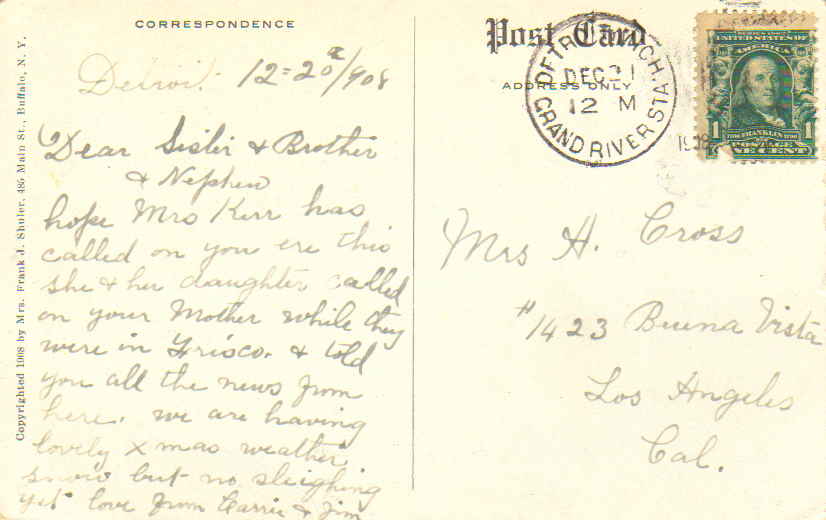 CORRESPONDENCE
Detroit 12=20/908
Dear Sister & Brother
& Nephew
hope Mrs Kerr has
called on you ere this
she & her daughter called
on your Mother while they
were in Frisco. & told
you all the news from
here. we are having
lovely xmas weather
snow but no sleighing
yet love from Carrie & Jim
Copyrighted 1908 by Mrs. Frank J. Shuler, 485 Main St., Buffalo, N. Y.
Post Card
ADDRESS ONLY
DETROIT, MICH.
DEC 21
12 M
GRAND RIVER STA.
SERIES 1902
UNITED STATES OF
AMERICA
1 1
FRANKLIN
POSTAGE
ONE CENT
Mrs H. Cross
#1423 Buena Vista
Los Angeles
Cal.